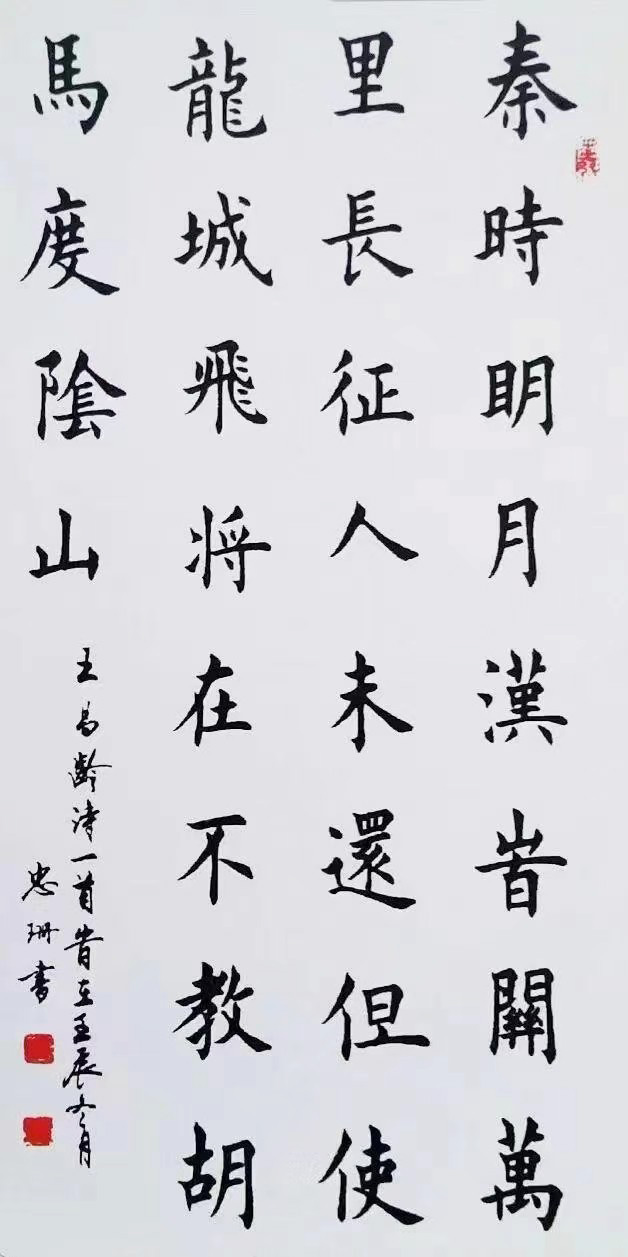 秦時明月漢旹關萬
里長征人未還但使
龍城飛将在不教胡
馬度陰山
王昌齡詩一首旹在壬辰冬月
忠珊書